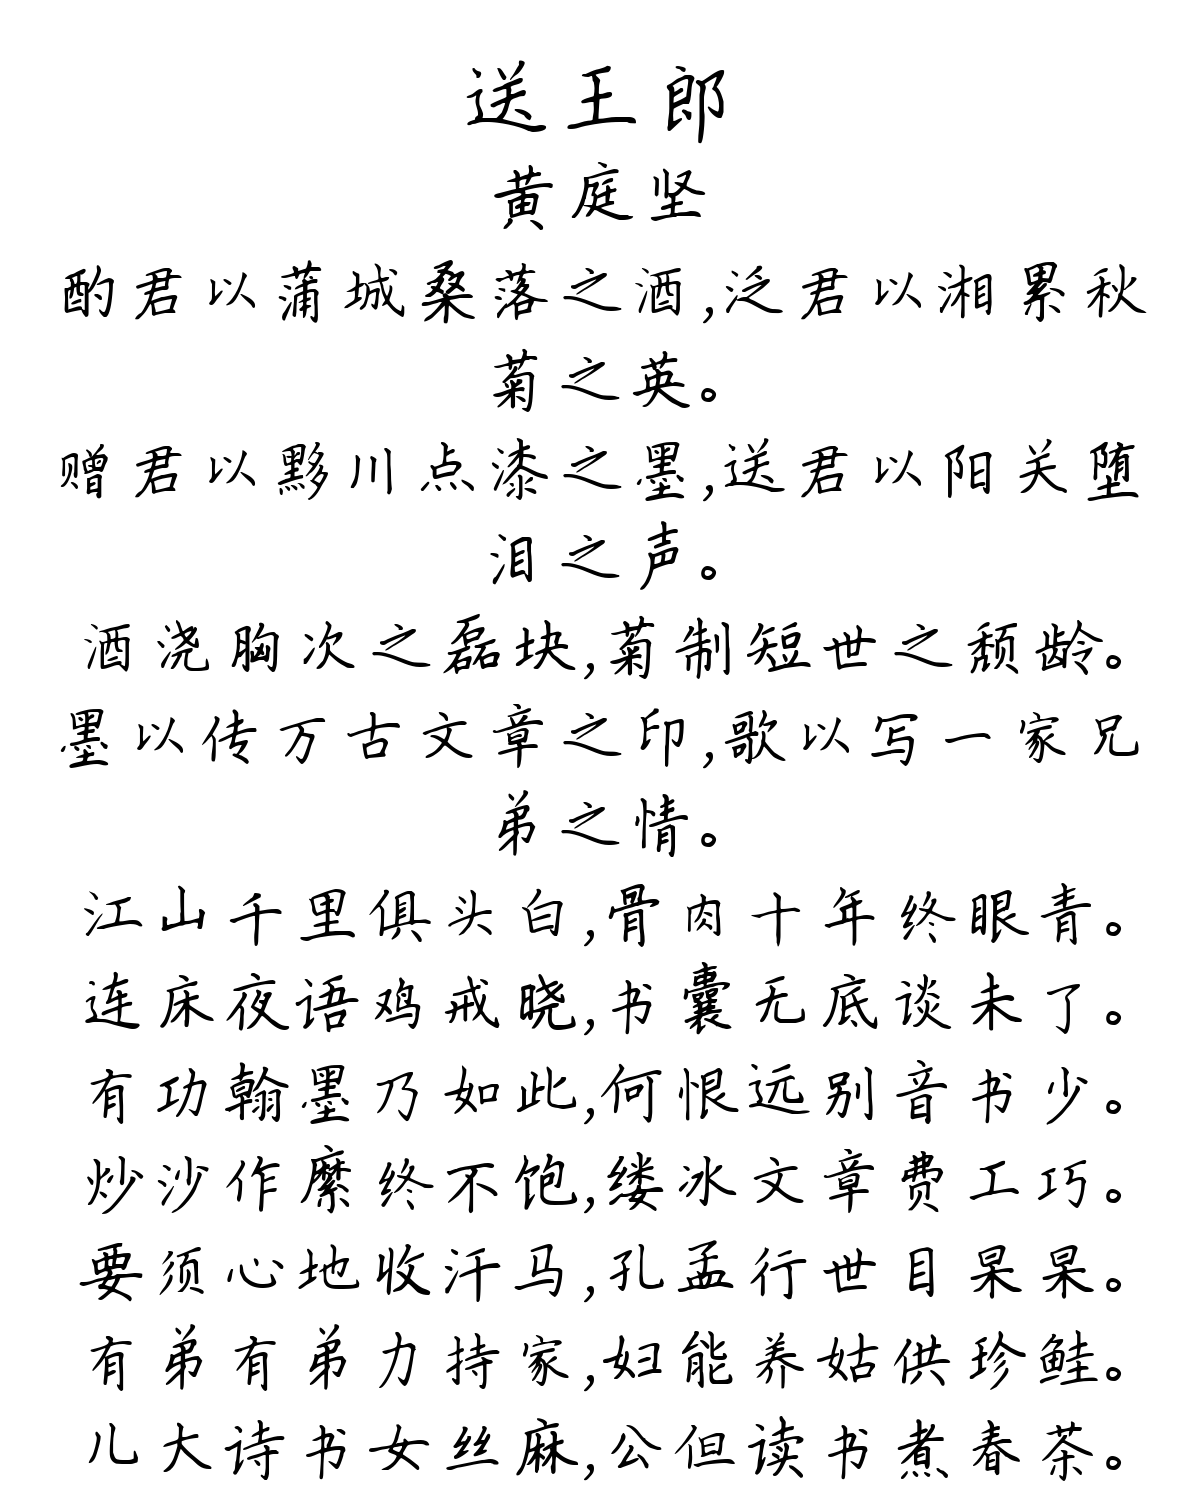 送王郎
黄庭坚
酌君以蒲城桑落之酒,泛君以湘累秋
菊之英。
赠君以黟川点漆之墨,送君以阳关堕
泪之声。
酒浇胸次之磊块,菊制短世之颓龄。
墨以传万古文章之印,歌以写一家兄
弟之情。
江山千里俱头白,骨肉十年终眼青。
连床夜语鸡戒晓,书囊无底谈未了。
有功翰墨乃如此,何恨远别音书少。
炒沙作縻终不饱,缕冰文章费工巧。
要须心地收汗马,孔孟行世目杲杲。
有弟有弟力持家,妇能养姑供珍鲑。
儿大诗书女丝麻,公但读书煮春茶。